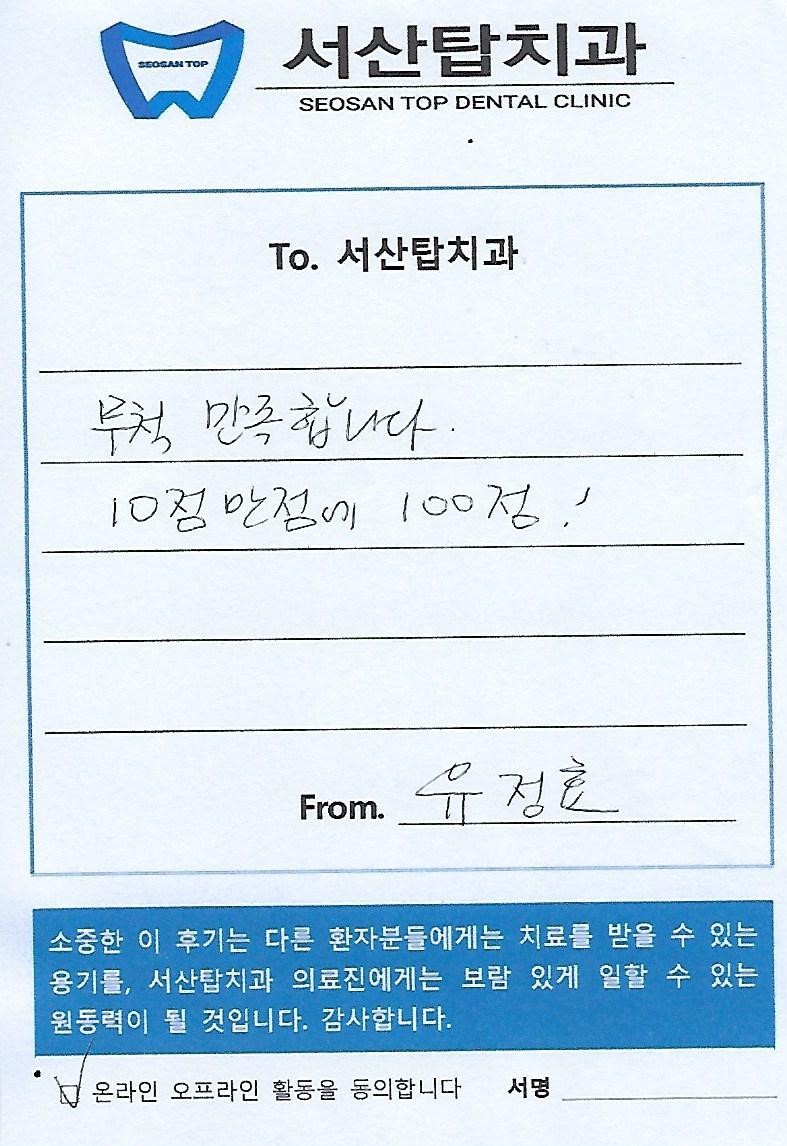 SEOSAN TOP
서산탑치과
SEOSAN TOP DENTAL CLINIC
To. 서산탑치과
무척 만족합니다.
10점 만점에 100점!
From. 유정효
소중한 이 후기는 다른 환자분들에게는 치료를 받을 수 있는
용기를, 서산탑치과 의료진에게는 보람 있게 일할 수 있는
원동력이 될 것입니다. 감사합니다.
온라인 오프라인 활동을 동의합니다 서명